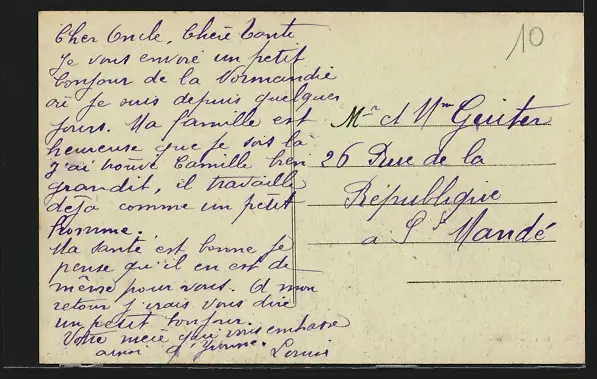 10
Cher Oncle, Chère Tante
Je vous envoie un petit
bonjour de la Normandie
où je suis depuis quelques
jours. Ma famille est
heureuse que je sois là
J'ai trouvé Camille bien
grandit, il travaille
déjà comme un petit
homme.
Ma santé est bonne je
pense qu'il en est de
même pour vous. A mon
retour j'irais vous dire
un petit bonjour.
Votre nièce qui vous embrasse
ainsi q' Yvonne.
Louis
Mr et Mme Guiter
26 Rue de la
République
a St Mandé